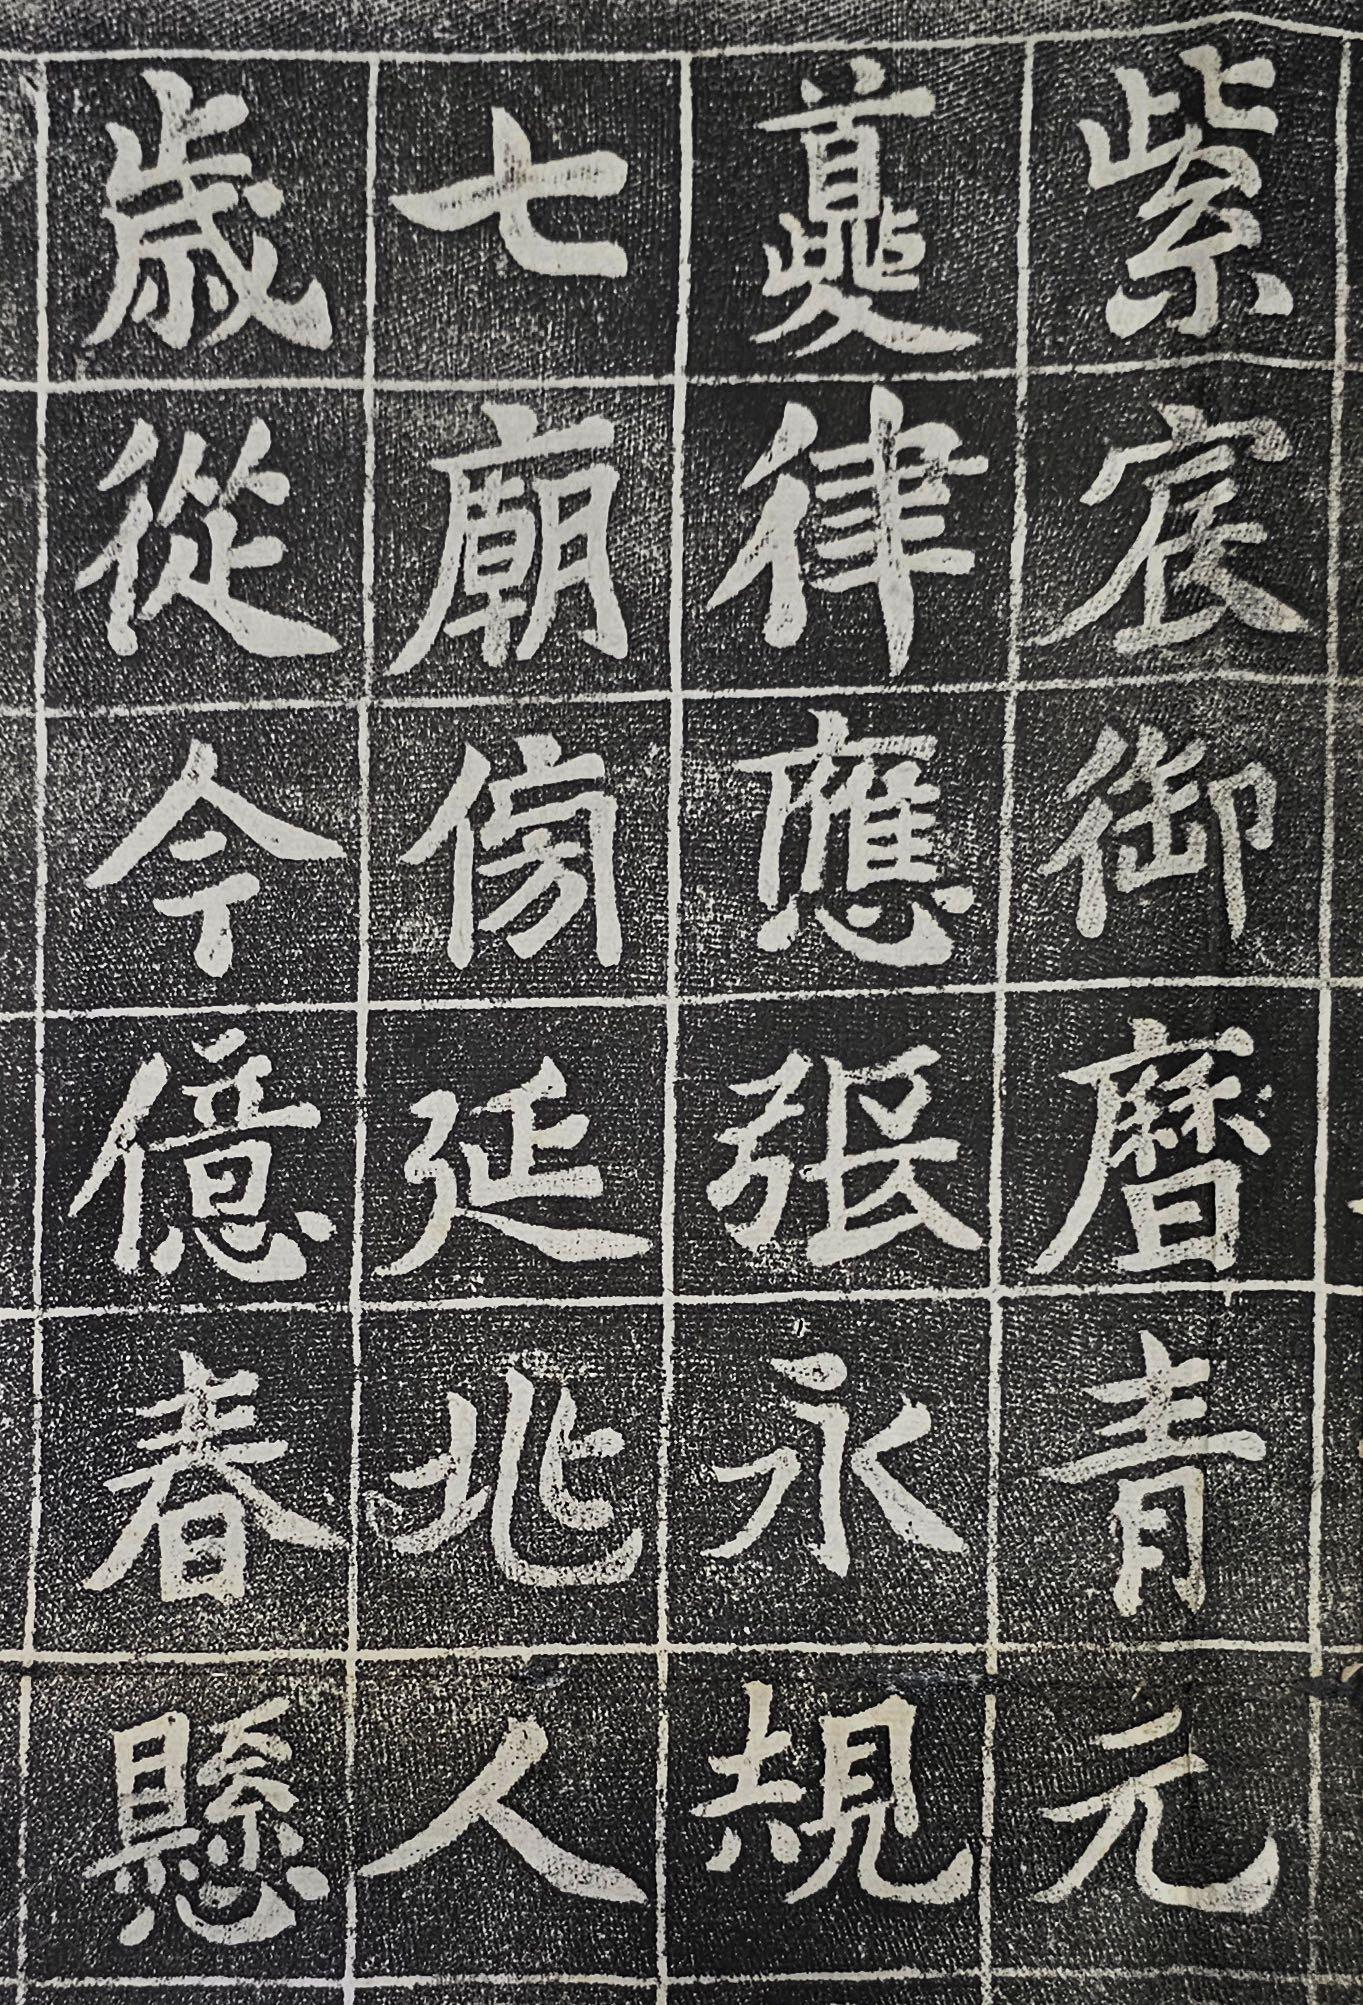 紫宸御曆青元
夔律應張永規
七廟傍延兆人
歳從今億春懸